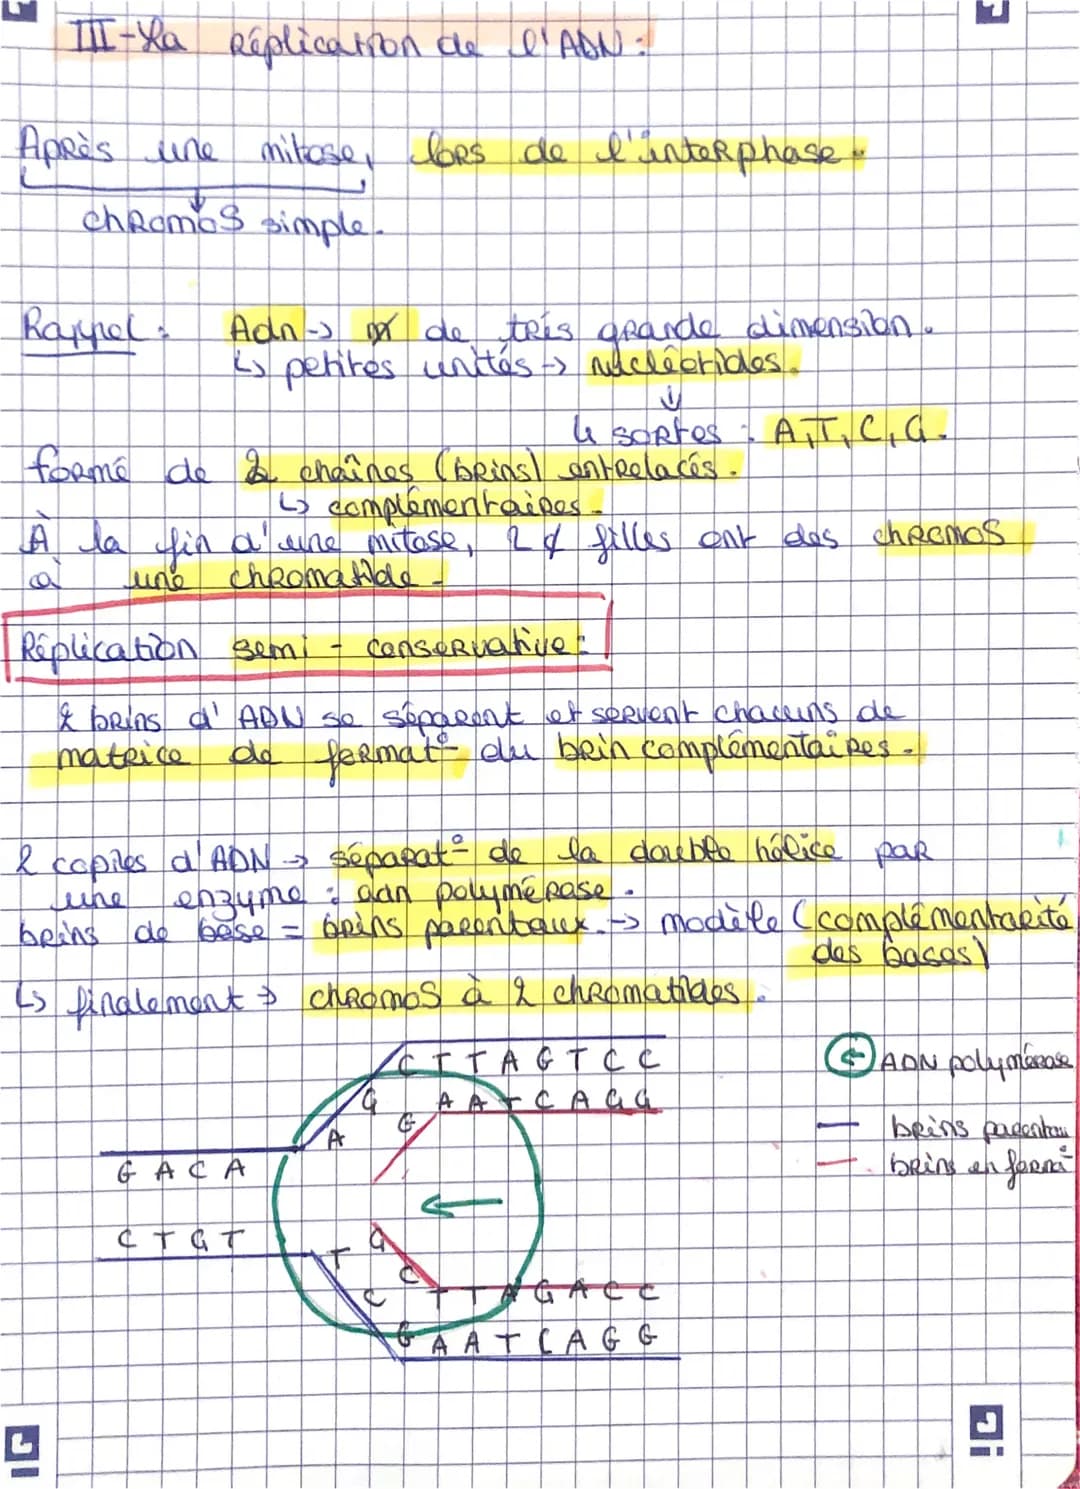 III - La Réplication de l'ADN :
Après une mitose, lors de l'interphase.
chromoS simple.
Rappel : Adn -> de très grande dimension.
↳ petites unités -> nucléotides.
↓
4 sortes : A, T, C, G.
formé de 2 chaînes (brins) entrelacés.
↳ complémentaires.
À la fin d'une mitose, 2 ¢ filles ont des chromos
à une chromatide.
Réplication semi - conservative :
2 brins d'ADN se séparent et servent chacuns de
matrice de format° du brin complémentaires.
2 copies d'ADN -> séparat° de la double hélice par
une enzyme : adn polymérase.
brins de base = brins parentaux. -> modèle (complémentarité
des bases)
↳ finalement -> chromoS à 2 chromatides.
C T T A G T C C
G A A T C A G G
G
A
G A C A
C T G T
T G
C C T T A G A C C
G A A T C A G G
← ADN polymérase
brins parentau
brins en forma°